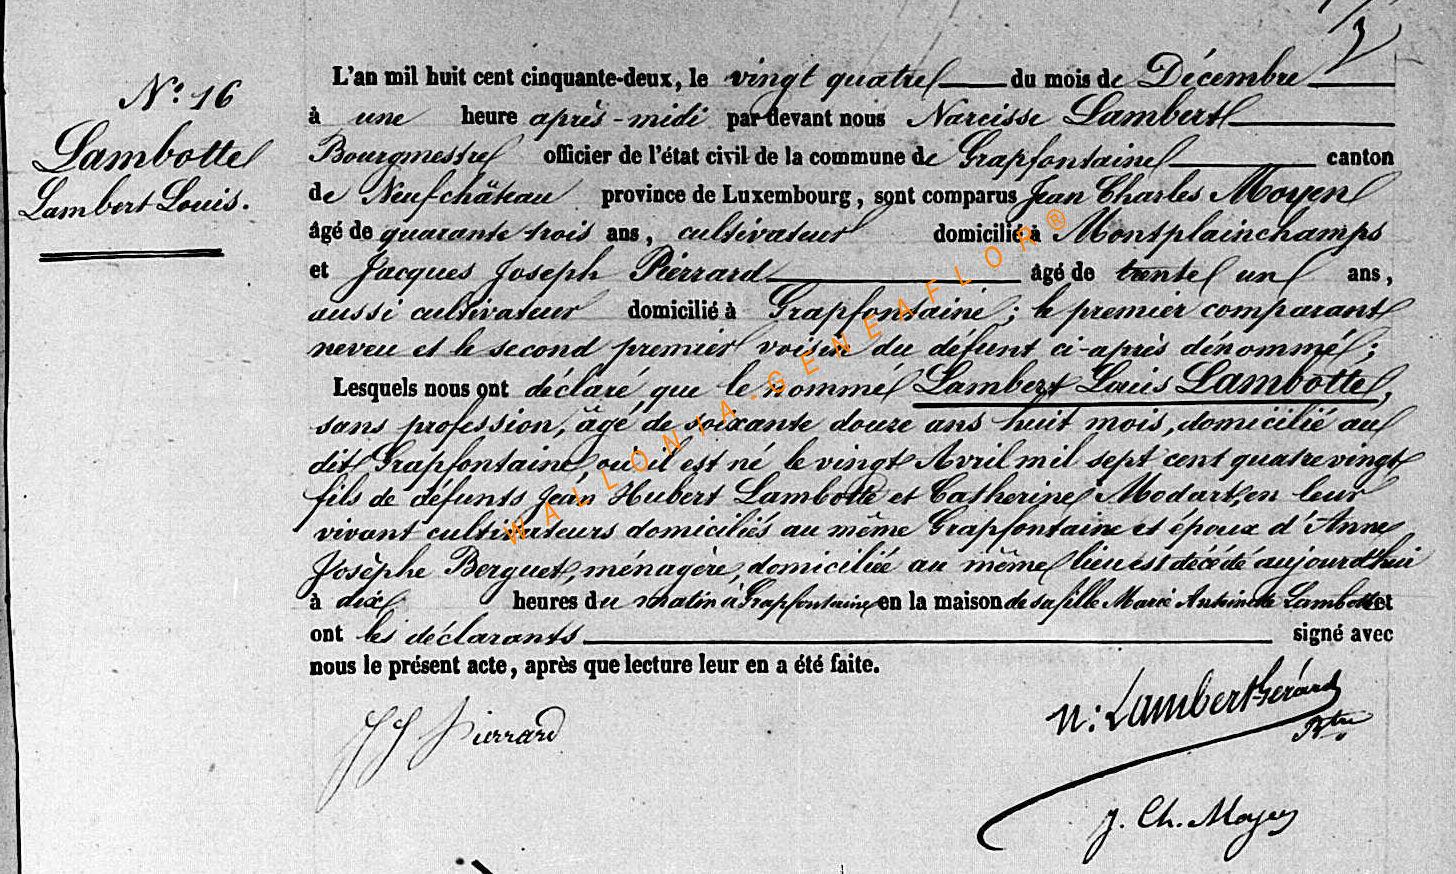 N.° 16
Lambotte
Lambert Louis.
L'an mil huit cent cinquante-deux, le vingt quatre du mois de Décembre
à une heure après-midi par devant nous Narcisse Lambert
Bourgmestre officier de l'état civil de la commune de Grapfontaine canton
de Neufchâteau province de Luxembourg, sont comparus Jean Charles Moyen
âgé de quarante trois ans, cultivateur domicilié à Montplainchamps
et Jacques Joseph Piérrard âgé de trente un ans,
aussi cultivateur domicilié à Grapfontaine; le premier comparant
neveu et le second premier voisin du défunt ci-après dénommé;
Lesquels nous ont déclaré, que le nommé Lambert Louis Lambotte,
sans profession, âgé de soixante douze ans huit mois, domicilié au
dit Grapfontaine, où il est né le vingt Avril mil sept cent quatre vingt
fils de défunts Jean Hubert Lambotte et Catherine Modart, en leur
vivant cultivateurs domiciliés au même Grapfontaine et époux d'Anne
Josèphe Berguet, ménagère, domiciliée au même lieu est décédé aujourd'hui
à dix heures du matin à Grapfontaine en la maison de sa fille Marie Antoinette Lambotte et
ont les déclarants signé avec
nous le présent acte, après que lecture leur en a été faite.
JJ Pierrard
N: Lambert-Gérard
Btre
J. Ch. Moyen
WALLONIA-GENEAFLOR®